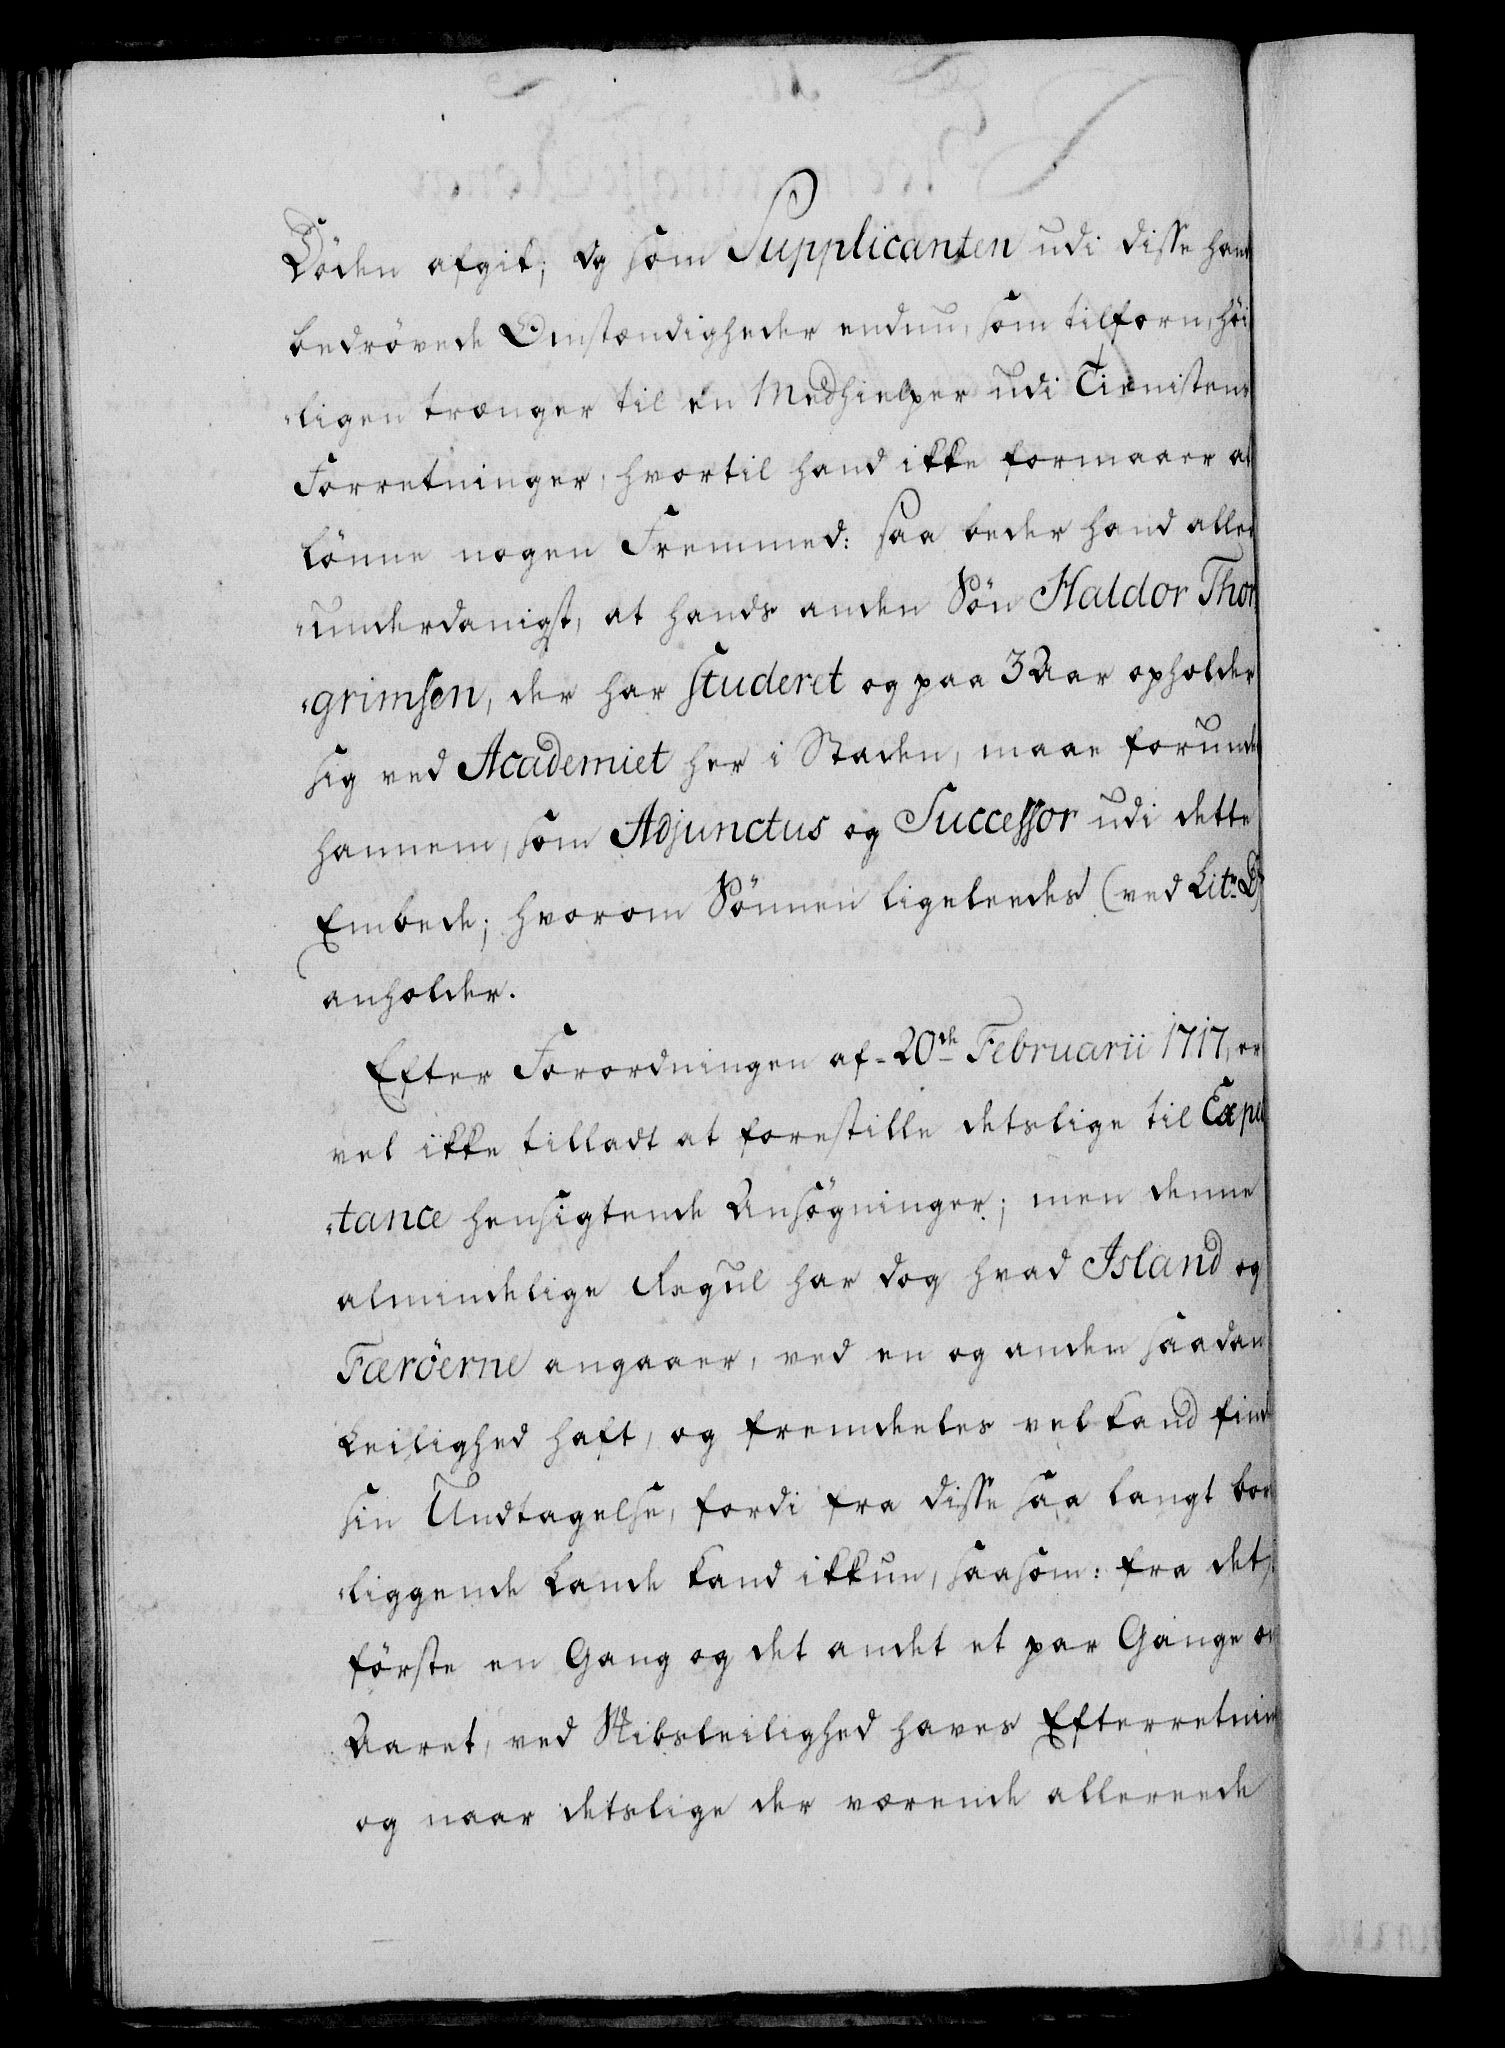 Döden afgik; Og som Supplicanten udi disse hans
bedrövede Omstændigheder endnu, som tilforn, höi
-ligen trænger til en Medhielper udi Tienistens
Forretninger, hvortil hand ikke formaaer at
lönne nogen Fremmed: saa beder hand aller
-underdanigst, at hands anden Sön Haldor Thor
-grimsen, der har studeret og paa 3 Aar opholdet
sig ved Academiet her i Staden, maae forundes
hannem, som Adjunctus og Successor udi dette
Embede; hvorom Sönnen ligeleedes (ved Litr. D)
anholder.
Efter Forordningen af 20de Februarii 1717, er
vel ikke tilladt at forestille detslige til Expec
-tance hensigtende Ansögninger; men denne
almindelige Regul har dog hvad Island og
Færöerne angaaer, ved en og anden saadan
Leilighed haft, og fremdeeles vel kand finde
sin Undtagelse, fordi fra disse saa langt bort
-liggende Lande kand ikkun, saasom: fra det
förste en Gang og det andet et par Gange om
Aaret, ved Skibsleilighed haves Efterretning
og naar detslige der værende allereede